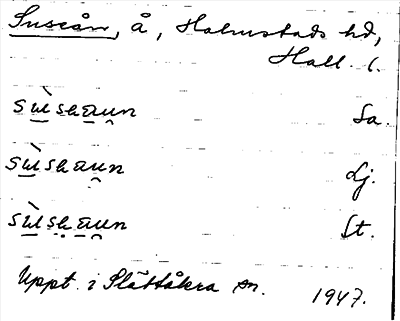 Suseån, å, Halmstads hd,
Hall. l.
sùskaun Sa.
sùskaun Lj.
sùskaun St.
Uppt. i Slättåkra sn. 1947.